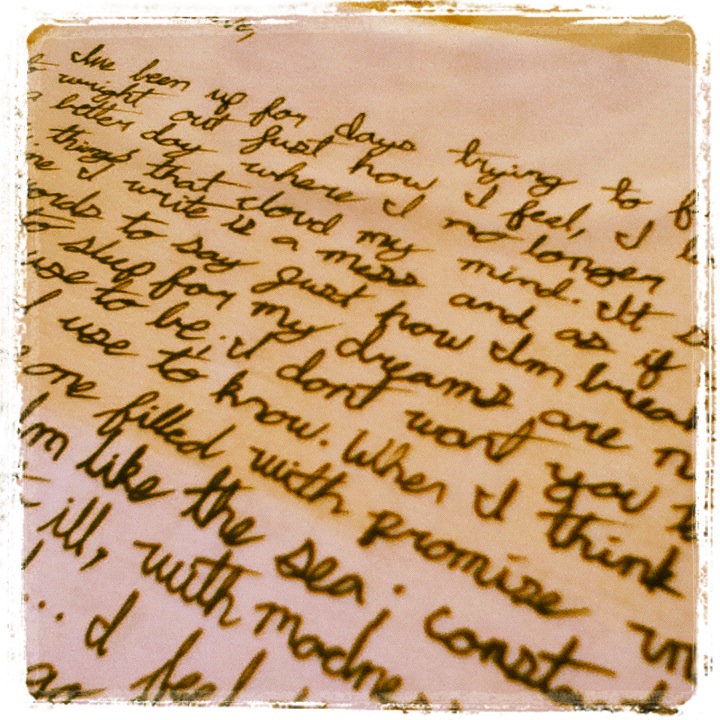 I've been up for days trying to
wright out just how I feel, I
better day where I no longer
things that cloud my mind. It
I write is a mess and as if
to say just how Im break
to sleep for my dreams are
use to be. I dont want you
I use to know. When I think
one filled with promise
Im like the sea. consta
ill, with madne
... I feel